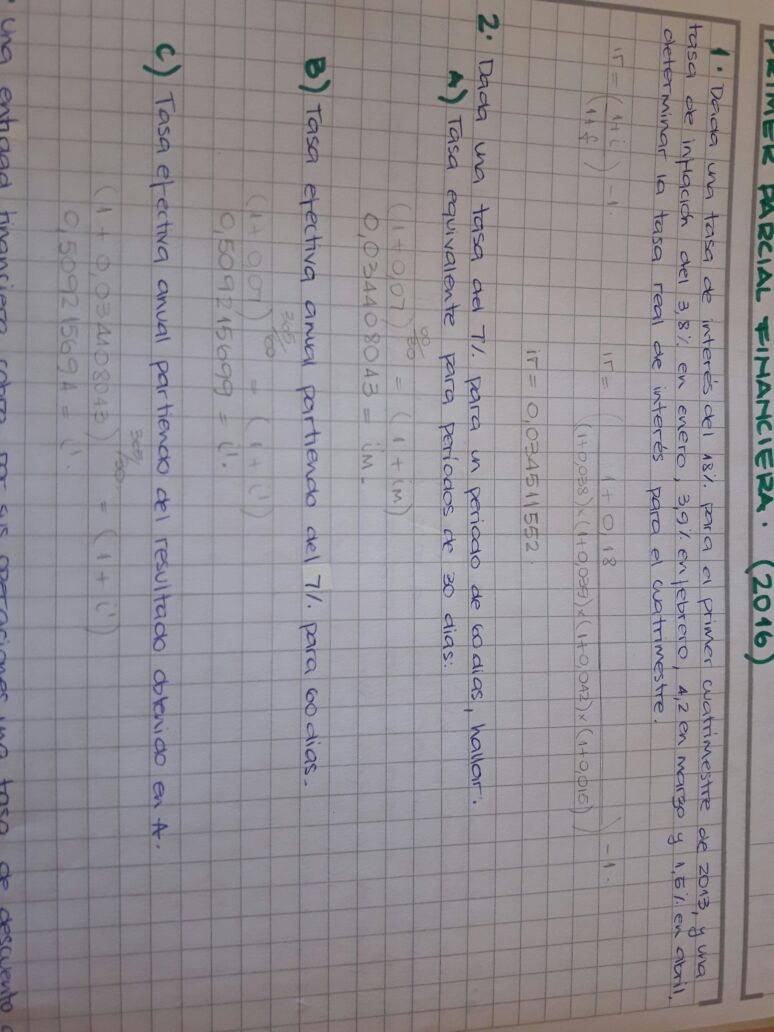 PRIMER PARCIAL FINANCIERA. (2016)
1. Dada una tasa de interés del 18% para el primer cuatrimestre de 2013, y una
tasa de inflación del 3,8% en enero, 3,9% en febrero, 4,2 en marzo y 1,5% en abril,
determinar la tasa real de interés para el cuatrimestre.
ir = (1+i / 1+f) - 1. ir = (1 + 0,18 / (1+0,038)x(1+0,039)x(1+0,042)x(1+0,015)) - 1.
ir = 0,034511552.
2. Dada una tasa del 7% para un periodo de 60 dias, hallar:
A) Tasa equivalente para periodos de 30 dias:
(1+0,07)^30/60 = (1 + im)
0,034408043 = im.
B) Tasa efectiva anual partiendo del 7% para 60 dias.
(1+0,07)^365/60 = (1 + i')
0,509215699 = i'.
C) Tasa efectiva anual partiendo del resultado obtenido en A.
(1 + 0,034408043)^365/30 = (1 + i')
0,509215694 = i'.
una entidad financiera cobra por sus operaciones una tasa de descuento